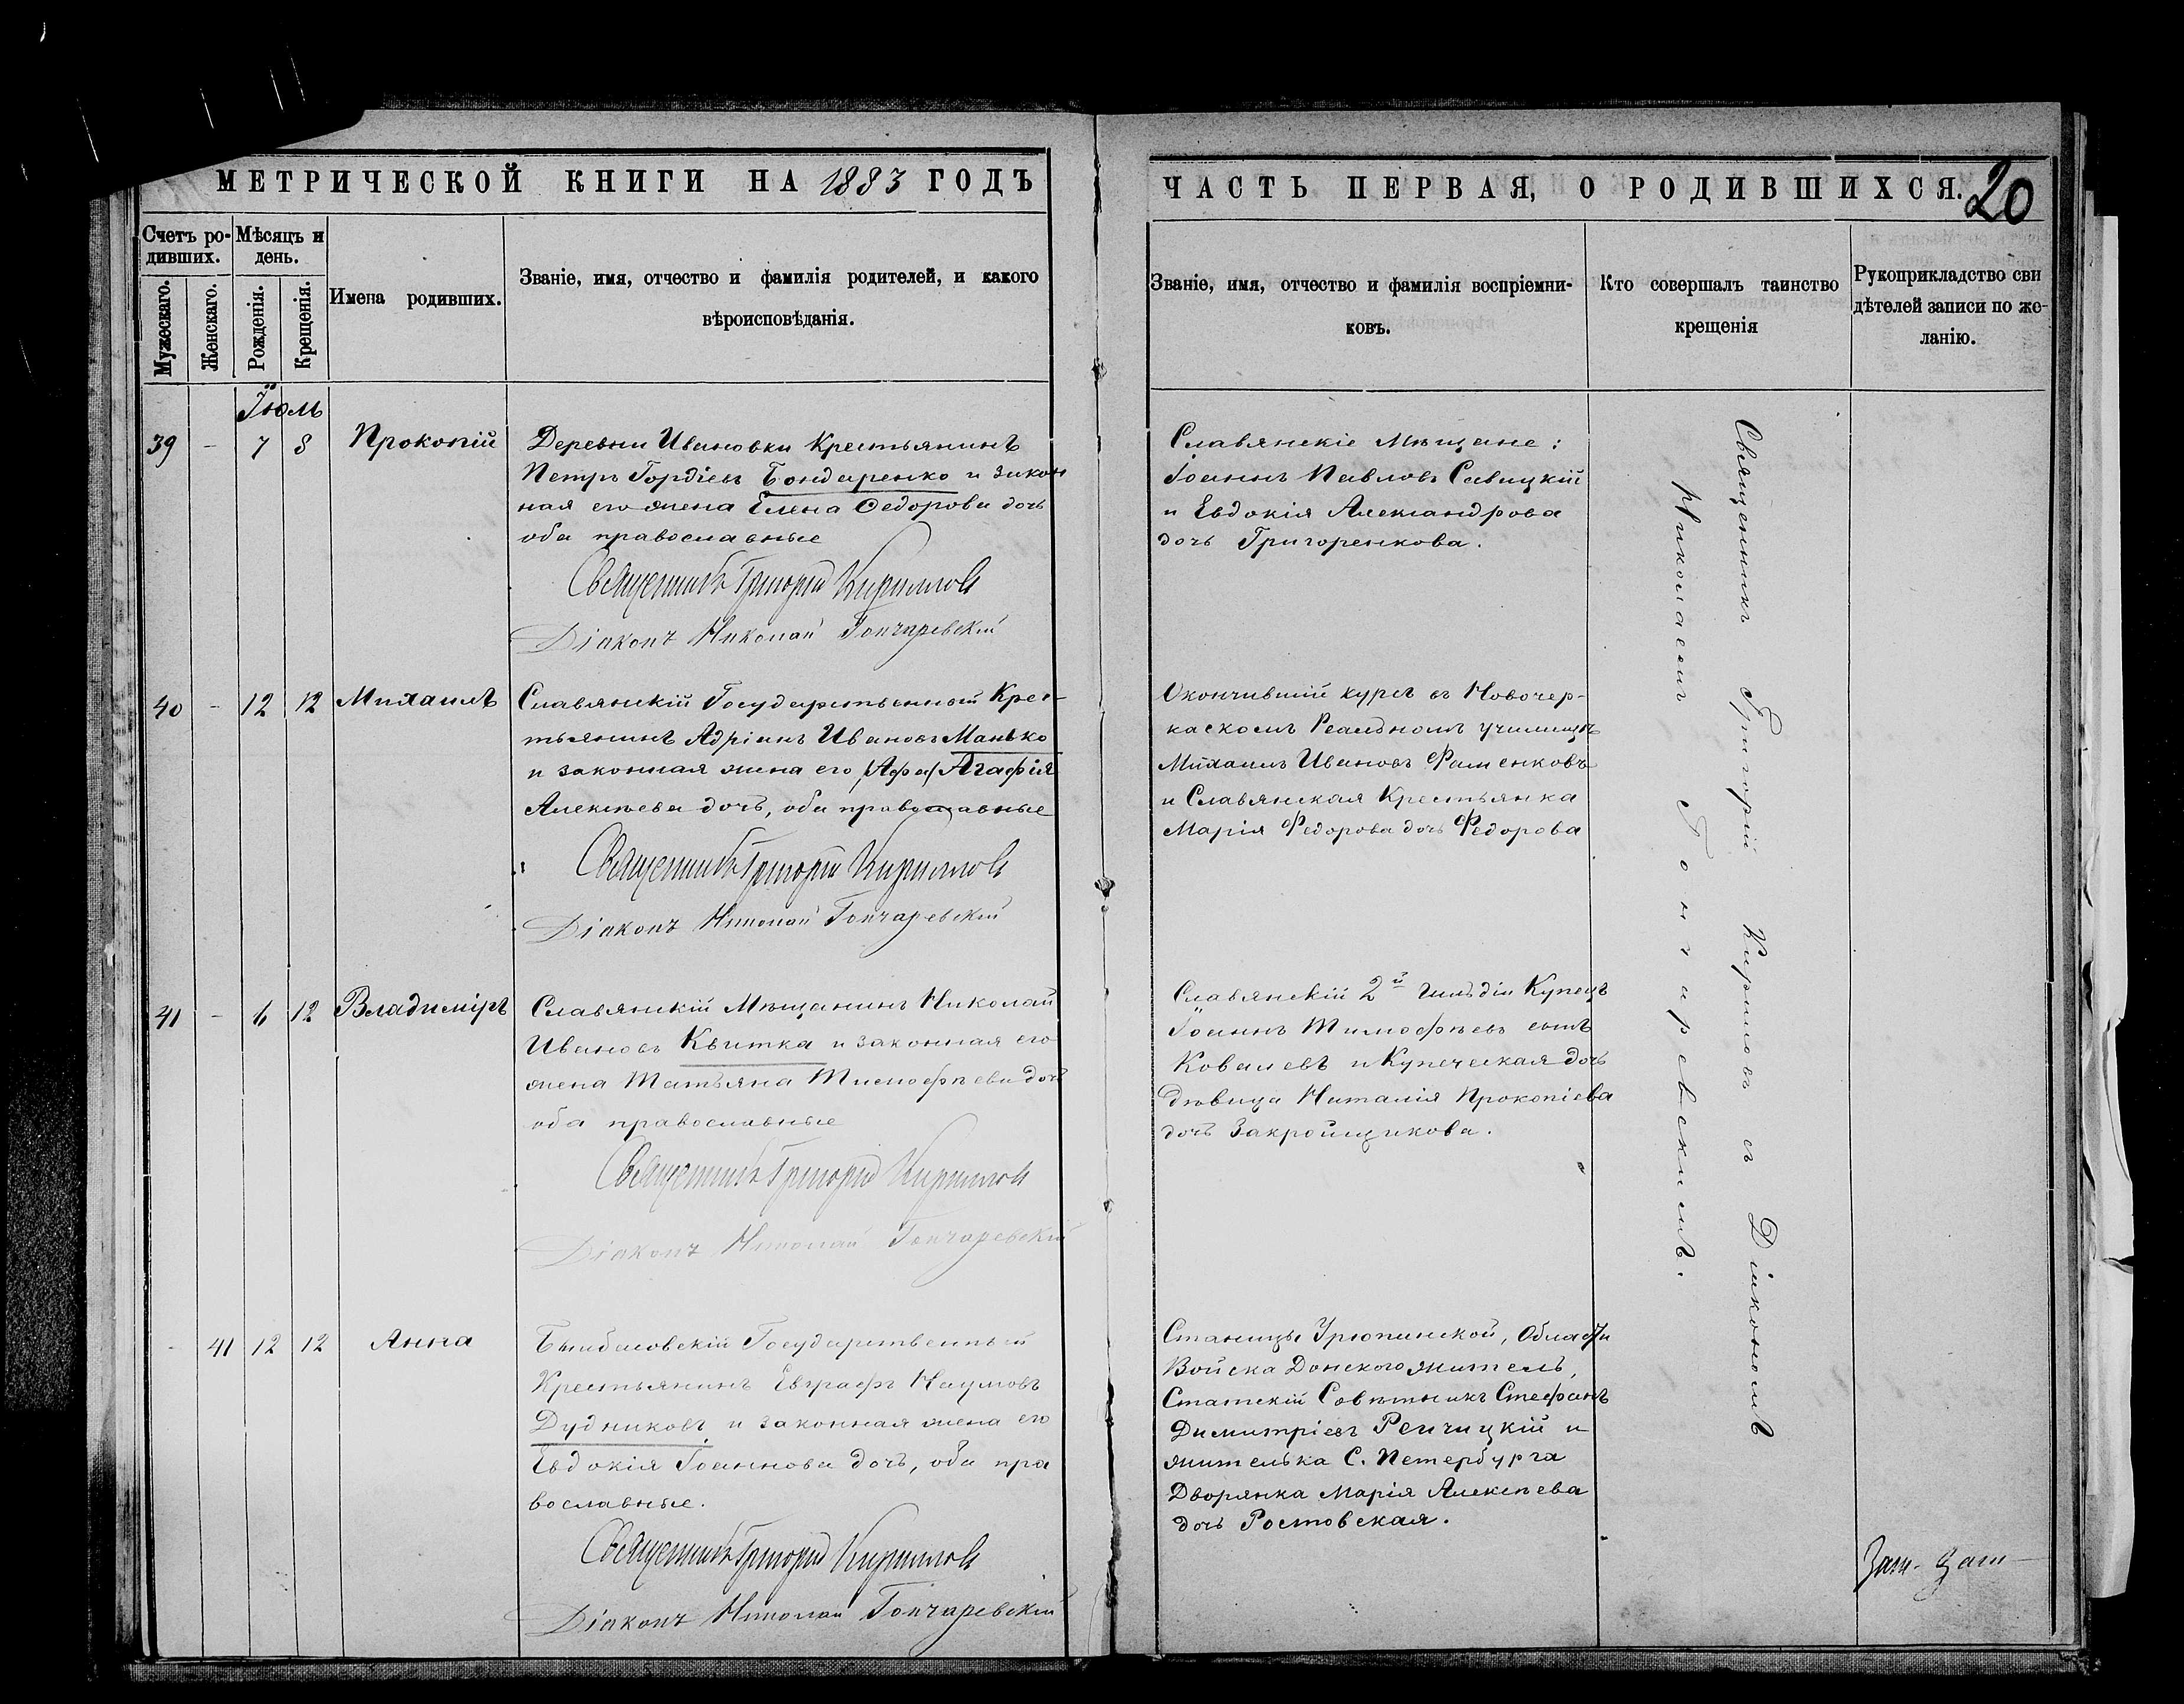 МЕТРИЧЕСКОЙ КНИГИ НА 1883 ГОДЪ
Счетъ ро-
дившихъ.
Мѣсяцъ и
день.
Мужескаго.
Женскаго.
Рожденія.
Крещенія.
Имена родившихъ.
Званіе, имя, отчество и фамилія родителей, и какого
вѣроисповѣданія.
Іюль
39 - 7 8 Прокопій
Деревни Ивановки Крестьянинъ
Петръ Гордіевъ Бондаренко и закон
ная его жена Елена Ѳедорова дочь
оба православные
Священникъ Григорій Кирилловъ
Діаконъ Николай Гончаревскій
40 - 12 12 Михаилъ
Славянскій Государственный Крес-
тьянинъ Адріанъ Ивановъ Манько
и законная жена его (Афа) Агафія
Алексѣева дочь, оба православные
Священникъ Григорій Кирилловъ
Діаконъ Николай Гончаревскій
41 - 6 12 Владиміръ
Славянскій Мѣщанинъ Николай
Ивановъ Квитка и законная его
жена Татьяна Тимофѣева дочь
оба православные
Священникъ Григорій Кирилловъ
Діаконъ Николай Гончаревскій
- 41 12 12 Анна
Государственный
Крестьянинъ Евграфъ Наумовъ
Дудниковъ и законная жена его
Евдокія Іоаннова дочь, оба пра
вославные.
Священникъ Григорій Кирилловъ
Діаконъ Николай Гончаревскій
ЧАСТЬ ПЕРВАЯ, О РОДИВШИХСЯ.
20
Званіе, имя, отчество и фамилія воспріемни-
ковъ.
Кто совершалъ таинство
крещенія
Рукоприкладство сви
дѣтелей записи по же-
ланію.
Славянскіе Мѣщане:
Іоаннъ Павловъ Савицкій
и Евдокія Александрова
дочь Григоренкова.
Окончившій курсъ въ Новочер-
каскомъ Реальномъ училищѣ
Михаилъ Ивановъ Фаменковъ
и Славянская Крестьянка
Марія Федорова дочь Федорова
Славянскій 2й гильдіи Купецъ
Іоаннъ Тимофѣевъ сынъ
Ковалевъ и Купеческая дочь
дѣвица Наталія Прокопіева
дочь Закройщикова.
Станицы Урюпинской, Области
Войска Донского житель,
Статскій Совѣтникъ Стефанъ
Димитріевъ Репчицкій и
жителька С. Петербурга
Дворянка Марія Алексѣева
дочь Ростовская.
Священникъ Григорій Кириловъ съ Діакономъ
Николаемъ Гончаревскимъ.